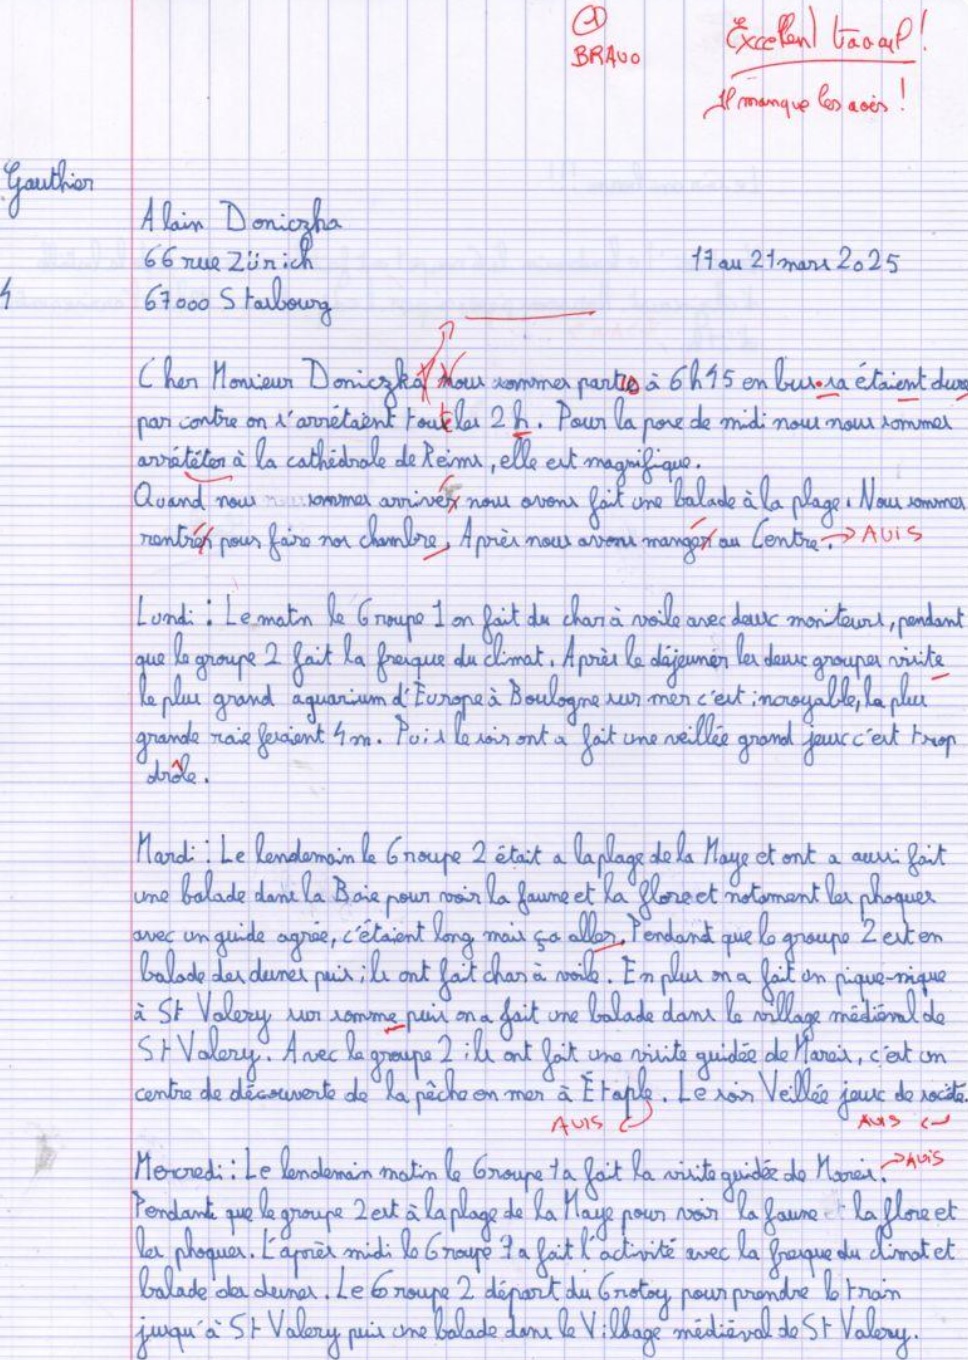 BRAVO
Excellent travail !
Il manque les avis !
Gauthier
Alain Doniczka
66 rue Zürich
17 au 21 mars 2025
67000 Starbourg
Cher Monsieur Doniczka nous sommes partis à 6h45 en bus. sa étaient dure
par contre on s'arrétaient toute les 2 h. Pour la pose de midi nous nous sommes
arrététer à la cathédrale de Reims, elle est magnifique.
Quand nous sommes arriver nous avons fait une balade à la plage. Nous sommes
rentrér pour faire nos chambre, Après nous avons manger au Centre. → AVIS
Lundi : Le matin le Groupe 1 on fait du char à voile avec deux moniteurs, pendant
que le groupe 2 fait la fresque du climat. Après le déjeuner les deux groupes visite
le plus grand aquarium d'Europe à Boulogne sur mer c'est incroyable, la plus
grande raie fesaient 4 m. Puis le soir ont a fait une veillée grand jeux c'est trop
drôle.
Mardi : Le lendemain le Groupe 2 était a la plage de la Maye et ont a aussi fait
une balade dans la Baie pour voir la faune et la flore et notament les phoques
avec un guide agrée, c'étaient long mais ça aller, Pendant que le groupe 2 est en
balade des dunes puis ils ont fait char à voile. En plus on a fait un pique-nique
à St Valery sur somme puis on a fait une balade dans le village médiéval de
St Valery. Avec le groupe 2 ils ont fait une visite guidée de Mareis, c'est un
centre de découverte de la pêche en mer à Étaple. Le soir Veillée jeux de socité.
AVIS
AVIS
Mercredi : Le lendemain matin le Groupe 1 a fait la visite guidée de Mareis. → AVIS
Pendant que le groupe 2 est à la plage de la Maye pour voir la faune et la flore et
les phoques. L'après midi le Groupe 1 a fait l'activité avec la fresque du climat et
balade des dunes. Le Groupe 2 départ du Crotoy pour prendre le train
jusqu'à St Valery puis une balade dans le Village médiéval de St Valery.